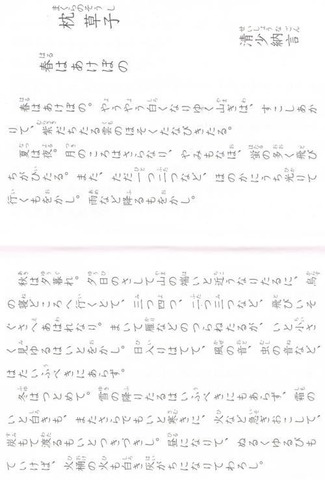 枕草子
清少納言
春はあけぼの
春はあけぼの。やうやう白くなりゆく山ぎは、すこしあか
りて、紫だちたる雲のほそくたなびきたる。
夏は夜。月のころはさらなり、やみもなほ、蛍の多く飛び
ちがひたる。また、ただ一つ二つなど、ほのかにうち光りて
行くもをかし。雨など降るもをかし。
秋は夕暮れ。夕日のさして山の端いと近うなりたるに、烏
の寝どころへ行くとて、三つ四つ、二つ三つなど、飛びいそ
ぐさへあはれなり。まいて雁などのつらねたるが、いと小さ
く見ゆるはいとをかし。日入りはてて、風の音、虫の音など、
はたいふべきにあらず。
冬はつとめて。雪の降りたるはいふべきにもあらず、霜の
いと白きも、またさらでもいと寒きに、火など急ぎおこして、
炭もて渡るもいとつきづきし。昼になりて、ぬるくゆるびも
ていけば、火桶の火も白き灰がちになりてわろし。